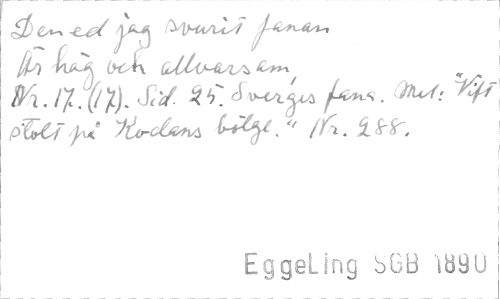 Den ed jag svurit fanan
Är hög och allvarsam,
Nr. 17. (17). Sid. 25. Sveriges fana. Mel: "Vift
stolt på Kodans bölge." Nr. 288.
EggeLing SGB 1890